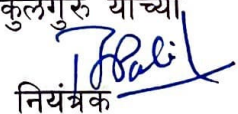 कुलगुरू यांच्या
नियंत्रक